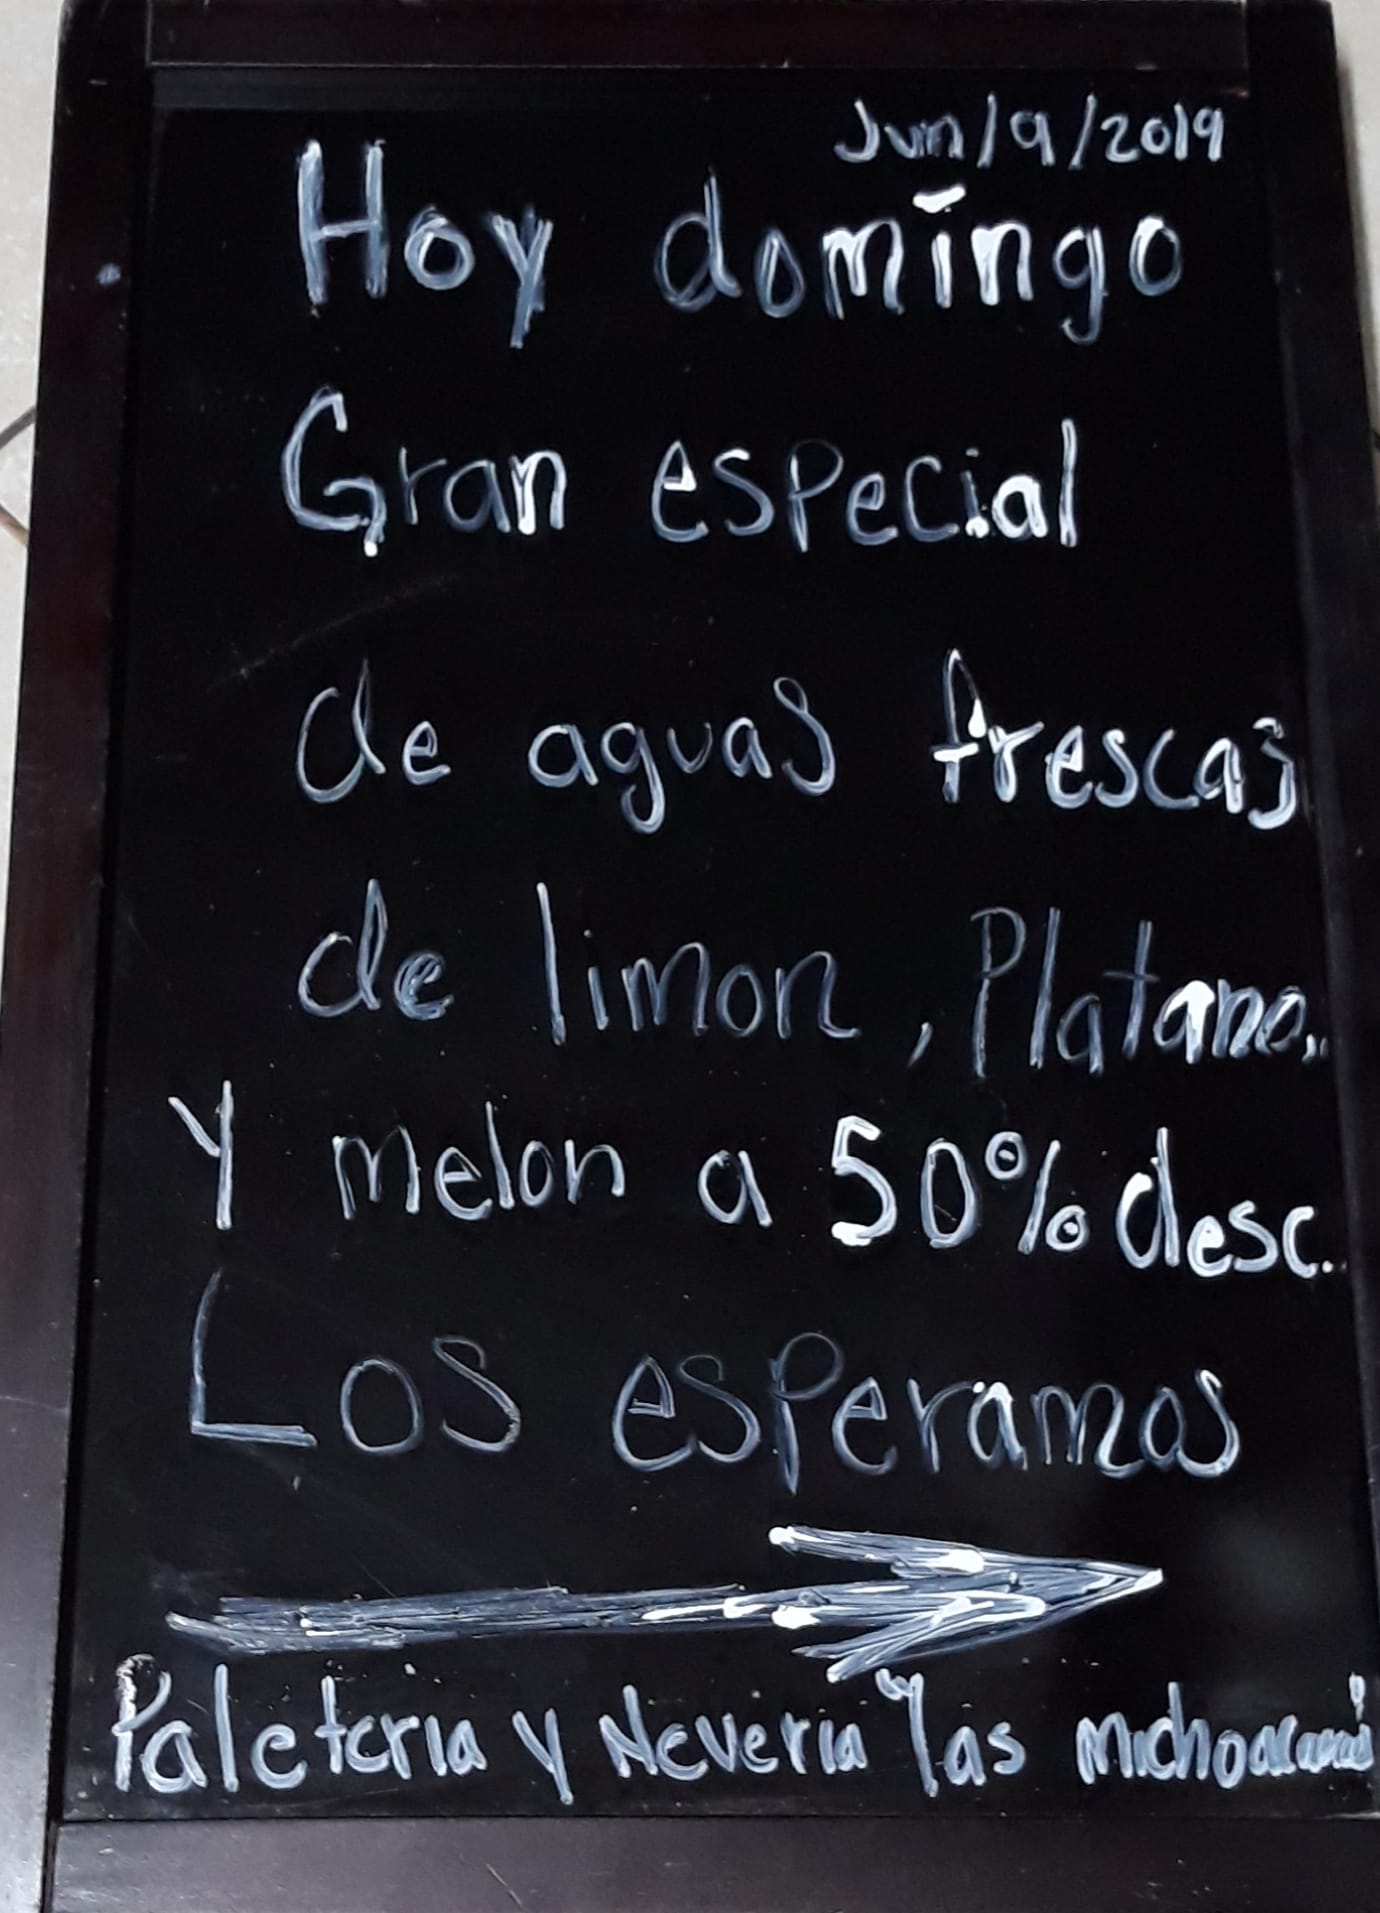 Jun/9/2019
Hoy domingo
Gran especial
de aguas frescas
de limon, Platano..
Y melon a 50% desc.
Los esperamos
Paleteria y Neveria "las